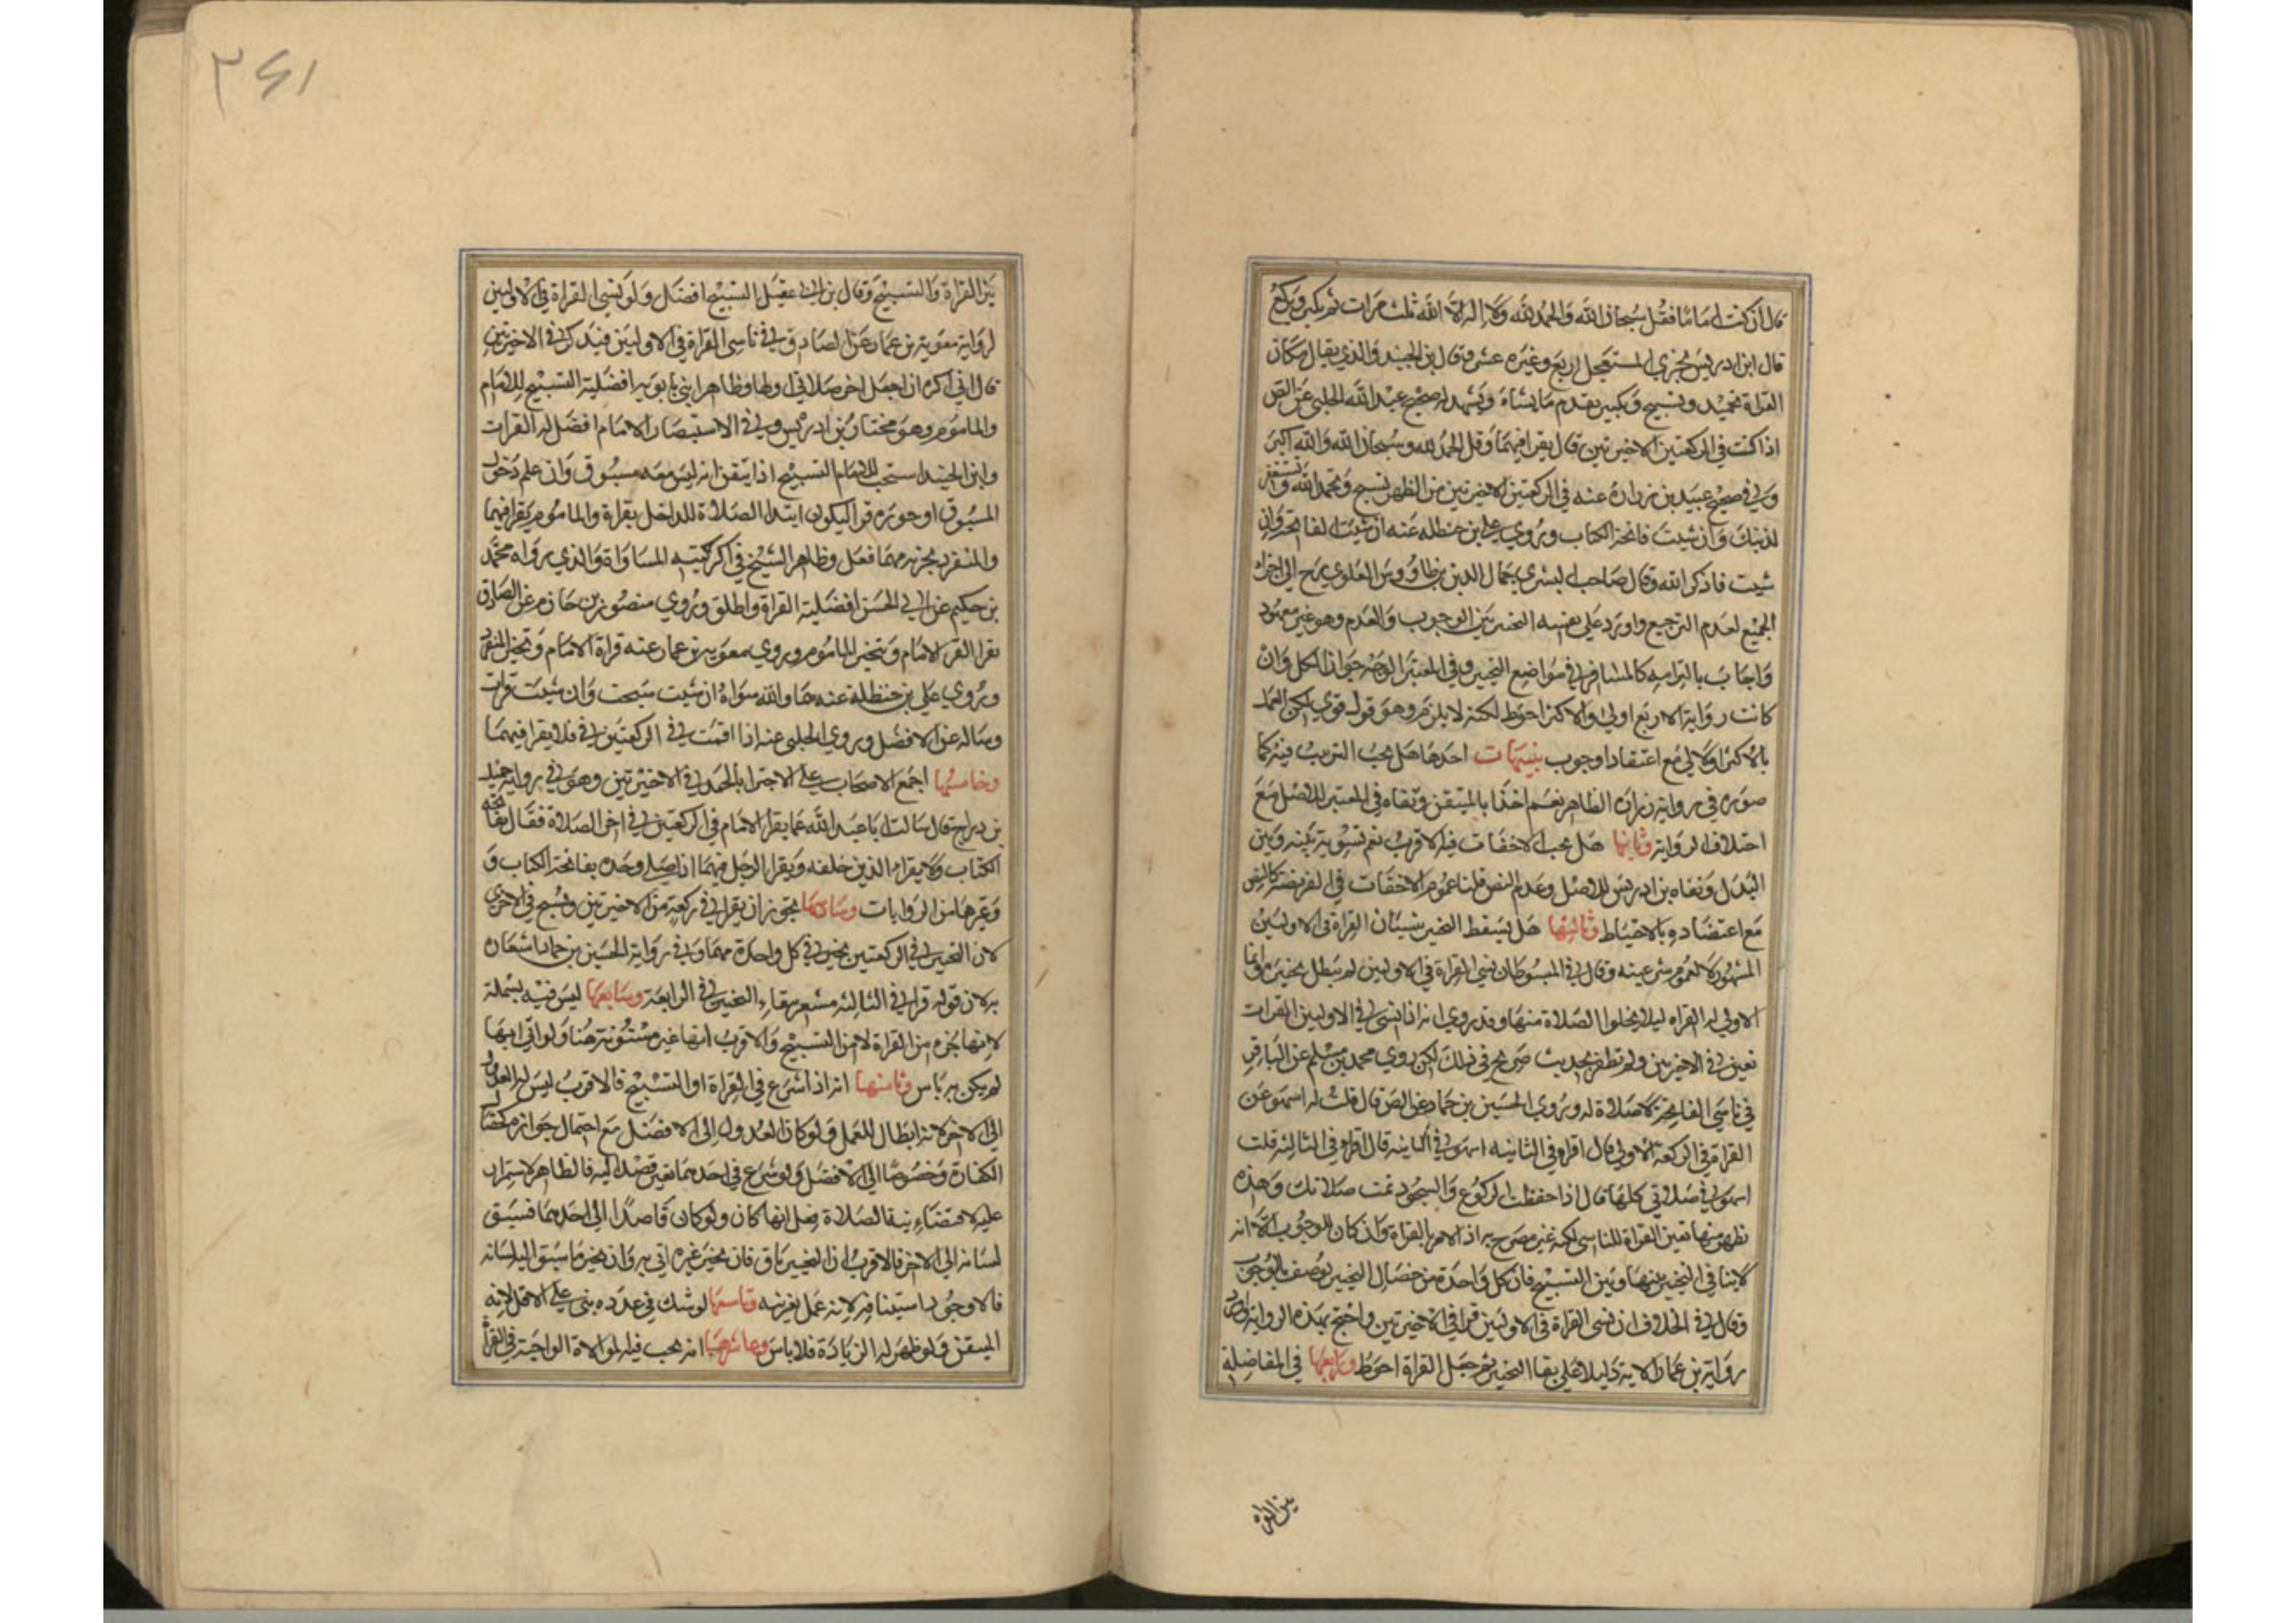 قال ان كنت اماما فقل سبحان الله والحمد لله ولا اله الا الله ثلث مرات ثم تكبر وتركع
قال ابن ادريس يجزي المستعجل اربع وغيره عشر وقال بن الجنيد والذي يقال مكان
القراة تحميد وتسبيح وتكبير يقدم ما يشاء ويشهد له صحيح عبيد الله الحلبي عن الص
اذا كنت في الركعتين الاخيرتين قال يقرا فيهما وقل الحمد لله وسبحان الله والله اكبر
وفي صحيح عبيد بن زرارة عنه في الركعتين الاخيرتين من الظهر تسبح وتحمد الله وتستغفر
لذنبك وان شيت فاتحة الكتاب وروي علي بن حنظله عنه ان شيت لفاتحة وان
شيت فاذكر الله وقال صاحب البشري جمال الدين بن طاووس العلوي رح الى اجزاء
الجميع لعدم الترجيح واورد على نفسه التخير بين الوجوب والعدم وهو غير معهود
واجاب بالتزامه كالمسافر في مواضع التخيير وفي المعتبر الوجه جواز الكل وان
كانت رواية الاربع اولى والاكثر احوط لكنه لا يلزم وهو قول قوي لكن العمل
بالاكثر اولى مع اعتقاد الوجوب تنبيهات احدها هل يجب الترتيب فيه كما
صوره في رواية زرارة الظاهر نعم اخذا بالمتيقن ونفاه في المعتبر للاصل مع
اختلاف الرواية وثانيها هل يجب الاخفات فيه الاقرب نعم تسوية بينه وبين
البدل ونفاه بن ادريس للاصل وعدم النص قلنا عموم الاخفات في الفريضة كالنص
مع اعتضاده بالاحتياط وثالثها هل يسقط التخير بنسيان القراة في الاوليين
المشهور لا لعموم شرعيته وقال في المبسوط ان نسي القراة في الاوليين لم يبطل تخييره وانما
الاولى له القراه ليلا يخلوا الصلاة منها وقد روي انه اذا نسي في الاوليين القراة
تعين في الاخيرتين ولم نظفر بحديث صريح في ذلك لكن روي محمد بن مسلم عن الباقر
في ناسي الفاتحة لا صلاة له وروي الحسين بن حماد عن الص قال قلت له اسهو عن
القراة في الركعة الاولى قال اقرا في الثانيه اسهو في الثانيه قال اقرا في الثالثة قلت
اسهو في صلاتي كلها قال اذا حفظت الركوع والسجود تمت صلاتك وهذه
تظهر منها تعين القراة للناسي لكنه غير مصرح به اذ الامر بالقراة وان كان للوجوب الا انه
لا ينافي التخيير بينها وبين التسبيح فان كل واحدة من خصال التخيير توصف بالوجوب
وقال في الخلاف ان نسي القراة في الاوليين قرا في الاخيرتين واحتج بهذه الرواية واورد
رواية بن عمار الاتية دليلا على بقا التخير ثم جعل القراة احوط ورابعها في المفاضلة
بين القراة
٣٤١
بين القراة والتسبيح وقال بن ابي عقيل التسبيح افضل ولو نسي القراة في الاوليين
لرواية معوية بن عمار عن الصادق في ناسي القراة في الاوليين فيذكر في الاخيرتين
قال اني اكره ان اجعل اخر صلاتي اولها وظاهر ابني بابويه افضلية التسبيح للامام
والماموم وهو مختار بن ادريس وفي الاستبصار الامام افضل له القراة
وابن الجنيد استحب للامام التسبيح اذا تيقن انه ليس معه مسبوق وان علم دخول
المسبوق او جوزه قرا ليكون ابتدا الصلاة للداخل بقراة والماموم يقرا فيهما
والمنفرد يجزيه مهما فعل وظاهر الشيخ في اكثر كتبه المساواة والذي رواه محمد
بن حكيم عن ابي الحسن افضلية القراة واطلق وروي منصور بن حازم عن الصادق
يقرا الامام ويتخير الماموم وروي معوية بن عمار عنه قراة الامام وتخير المنفرد
وروي علي بن حنظلة عنه هما والله سواء ان شيت سبحت وان شيت قرات
وساله عن الافضل وروي الحلبي عنه اذا اقمت في الركعتين فلا يقرا فيهما
وخامسها اجمع الاصحاب على الاجتزا بالحمد في الاخيرتين وهو في رواية جميل
بن دراج قال سالت ابا عبد الله عما يقرا الامام في الركعتين في اخر الصلاة فقال بفاتحة
الكتاب ولا يقرا الذين خلفه ويقرا الرجل فيهما اذا صلى وحده بفاتحة الكتاب و
وغيرها من الروايات وسادسها يجوز ان يقرا في ركعة من الاخيرتين ويسبح في الاخرى
لان التخيير في الركعتين تخيير في كل واحدة منهما وفي رواية الحسين بن حماد اشعار
به لان قوله قرا في الثالثه مشعر ببقاء التخيير في الرابعة وسابعها ليس فيه بسملة
لانها جزء من القراة لا من التسبيح والاقرب انها غير مسنونة هنا ولو اتى بها
لم يكن به باس وثامنها انه اذا شرع في القراة او التسبيح فالاقرب ليس له العدول
الى الاخر لانه ابطال للعمل ولو كان العدول الى الافضل مع احتمال جوازه كخصال
الكفارة وخصوصا الى الافضل ولو شرع في احدهما بغير قصد اليه فالظاهر الاستمرار
عليه لاقتضاء نية الصلاة فعل ايهما كان ولو كان قاصدا الى احدهما فسبق
لسانه الى الاخر فالاقرب ان التخيير باق فان تخير غيره اتى به وان تخير ما سبق اليه لسانه
فالاوجود استينافه لانه عمل بغير نيه وتاسعها لو شك في عدده بنى على الاقل لانه
المتيقن ولو ظهر له الزيادة فلا باس وعاشرها انه يجب فيه الموالاة الواجبة في القراة